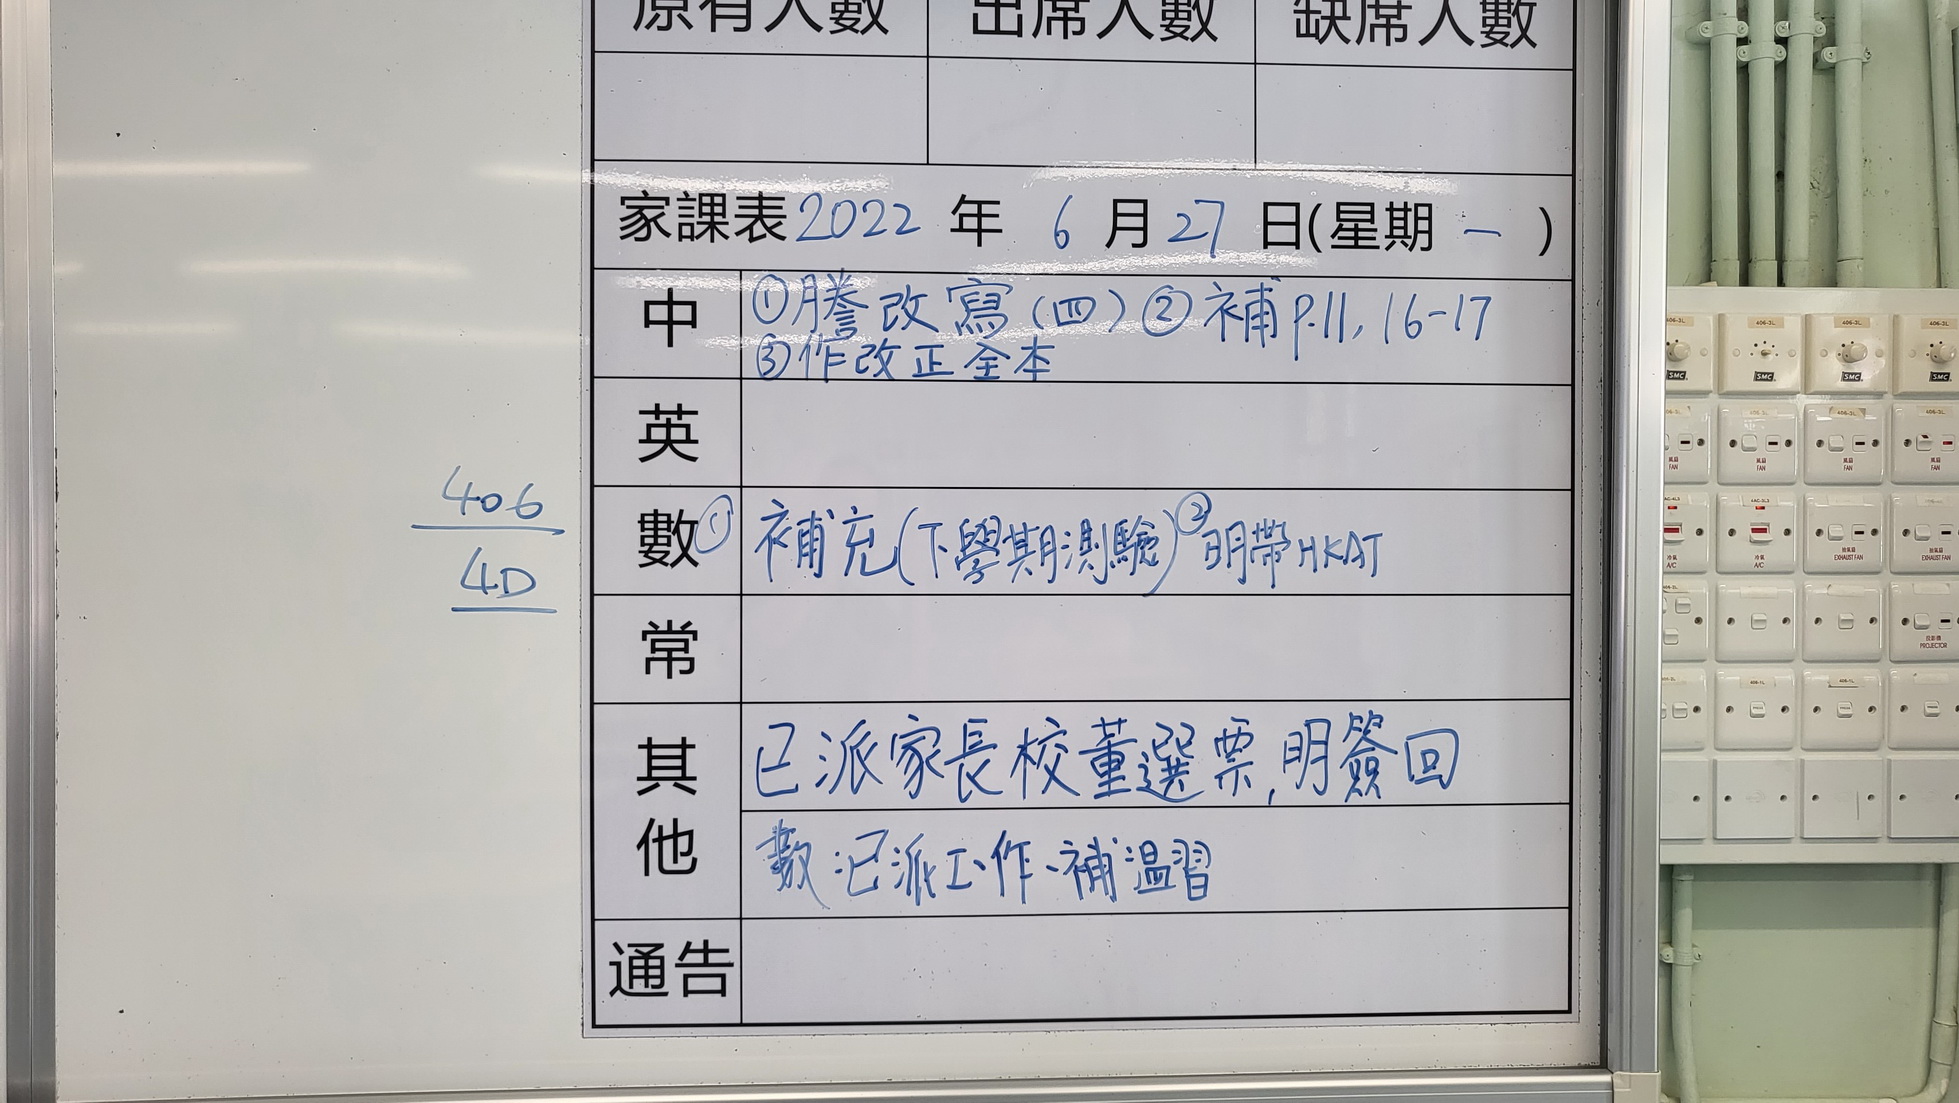 原有人數 出席人數 缺席人數
家課表 2022 年 6 月 27 日(星期 一 )
中 ①謄改寫(四) ②補 P.11, 16-17
③作改正全本
英
數 ①補充(下學期測驗) ②明帶HKAT
常
其他 已派家長校董選票,明簽回
數:已派工作、補溫習
通告
406
4D
406-3L 406-3L 406-3L
SMC SMC SMC SMC
風扇 FAN 風扇 FAN 風扇 FAN 風扇 FAN
冷氣 A/C 冷氣 A/C 抽氣扇 EXHAUST FAN 抽氣扇 EXHAUST FAN
投影機 PROJECTOR